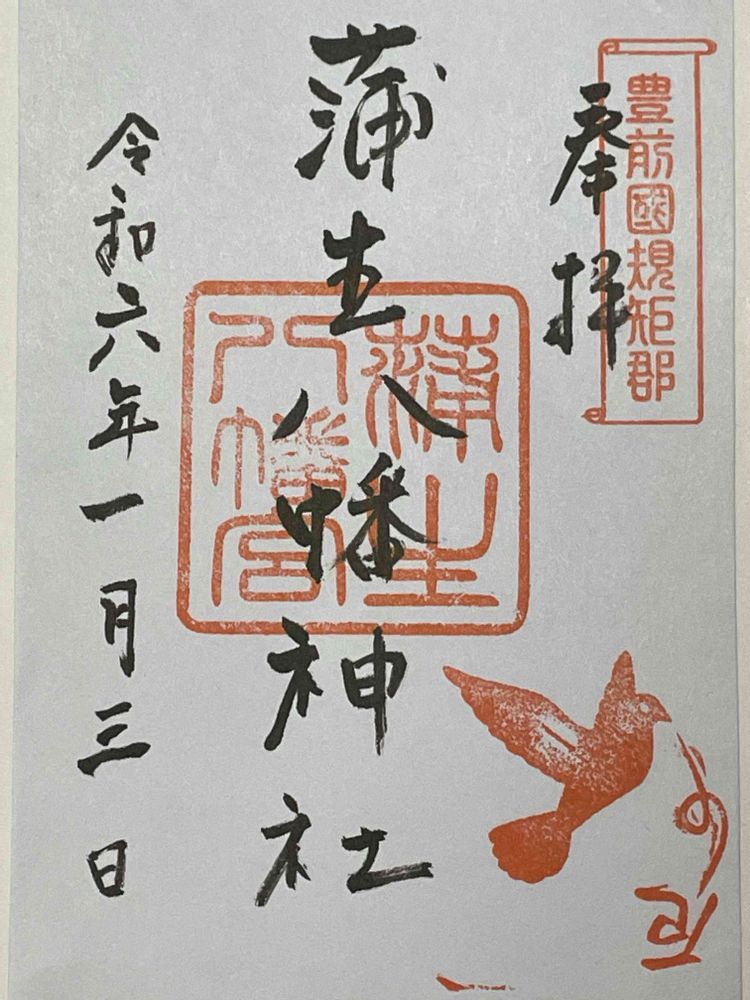 豊前國規矩郡
奉拝
蒲生八幡神社
蒲生
八幡宮
令和六年一月三日